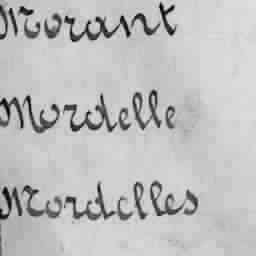 Morant
Mordelle
Mordelles